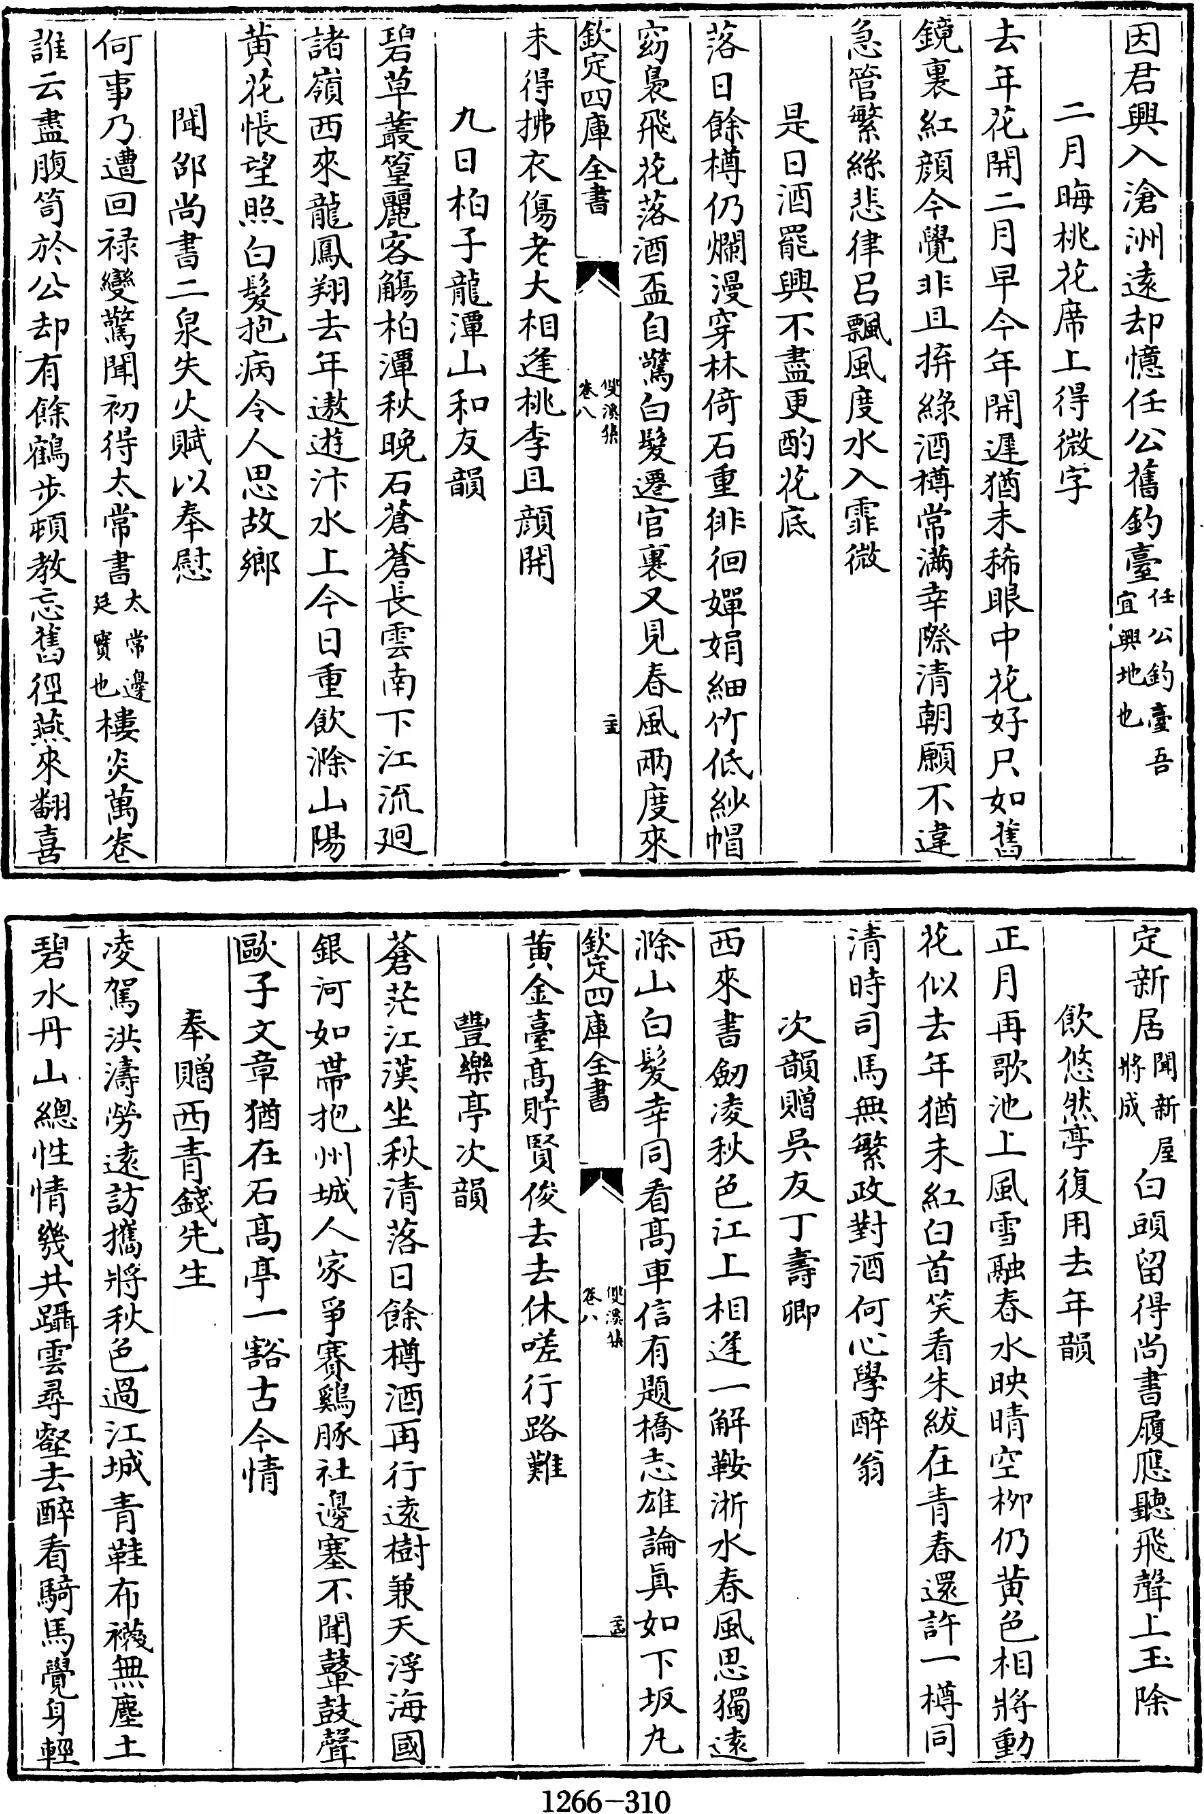 因君興入滄洲遠却憶任公舊釣臺任公釣臺吾宜興地也
二月晦桃花席上得微字
去年花開二月早今年開遲猶未稀眼中花好只如舊
鏡裏紅顔今覺非且拚綠酒樽常滿幸際清朝願不違
急管繁絲悲律呂飄風度水入霏微
是日酒罷興不盡更酌花底
落日餘樽仍爛漫穿林倚石重徘徊嬋娟細竹低紗帽
窈裊飛花落酒盃自驚白髮遷官裏又見春風兩度來
欽定四庫全書
雙溪集
卷八
未得拂衣傷老大相逢桃李且顔開
九日柏子龍潭山和友韻
碧草叢篁麗客觴柏潭秋晚石蒼蒼長雲南下江流廻
諸嶺西來龍鳳翔去年遨遊汴水上今日重飲滁山陽
黄花悵望照白髮抱病令人思故鄉
聞邵尚書二泉失火賦以奉慰
何事乃遭回禄變驚聞初得太常書太常邊廷實也樓炎萬卷
誰云盡腹笥於公却有餘鶴步頓教忘舊徑燕來翻喜
定新居聞新屋將成白頭留得尚書履應聽飛聲上玉除
飲悠然亭復用去年韻
正月再歌池上風雪融春水映晴空柳仍黄色相將動
花似去年猶未紅白首笑看朱紱在青春還許一樽同
清時司馬無繁政對酒何心學醉翁
次韻贈吳友丁壽卿
西來書劒凌秋色江上相逢一解鞍淅水春風思獨遠
滁山白髮幸同看高車信有題橋志雄論真如下坂丸
欽定四庫全書
雙溪集
卷八
黄金臺髙貯賢俊去去休嗟行路難
豐樂亭次韻
蒼茫江漢坐秋清落日餘樽酒再行遠樹兼天浮海國
銀河如帶抱州城人家爭賽鷄豚社邊塞不聞鼙鼓聲
歐子文章猶在石高亭一豁古今情
奉贈西青錢先生
凌駕洪濤勞遠訪攜將秋色過江城青鞋布襪無塵土
碧水丹山總性情幾共躡雲尋壑去醉看騎馬覺身輕
1266-310